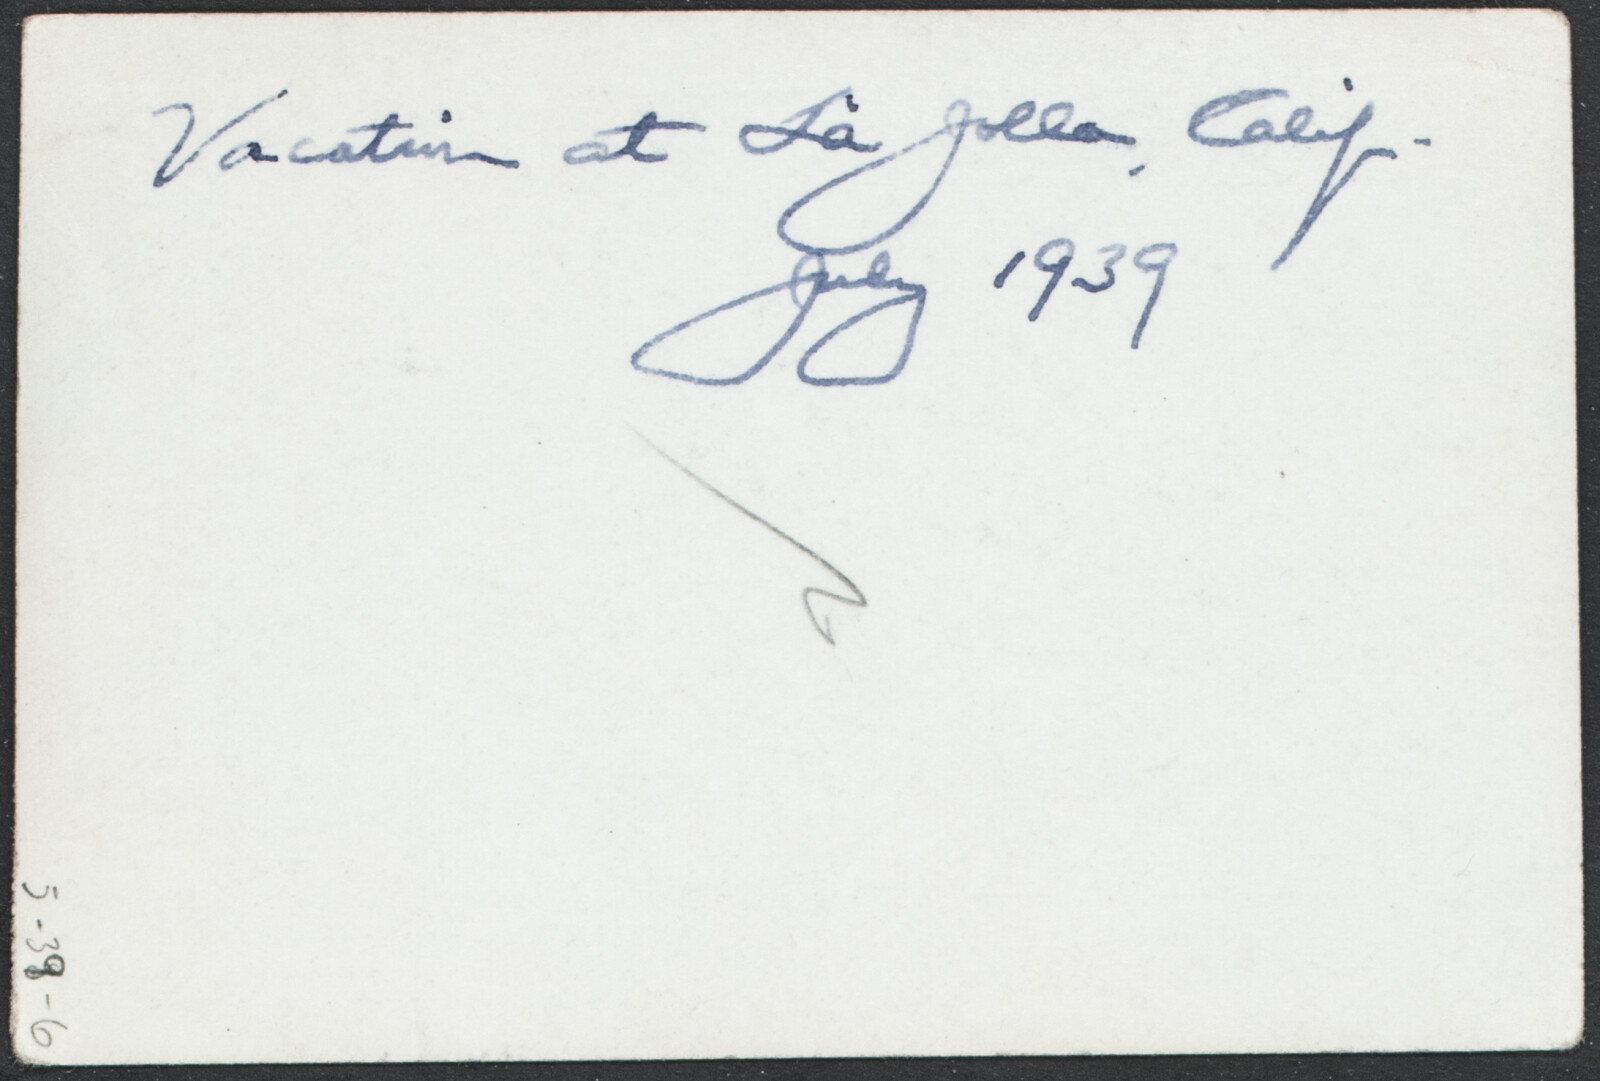 Vacation at La Jolla, Calif.
July 1939
5-39-6